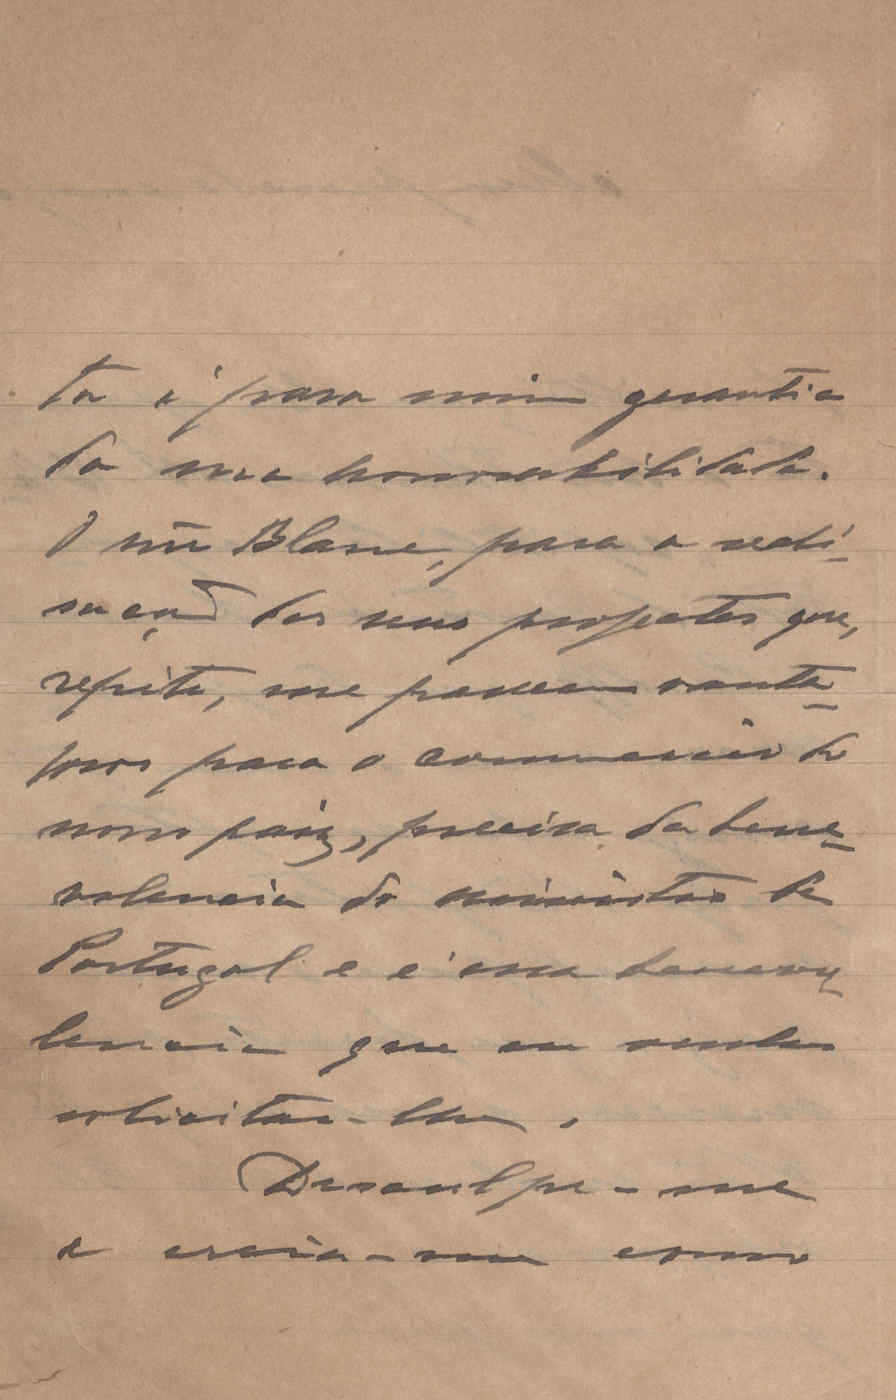 ta é para mim garantia
da sua honorabilidade.
O snr Blanc, para a reali-
sação dos seus projectos que,
repito, me parecem vanta-
josos para o commercio do
nosso paiz, precisa da bene-
volencia do ministro de
Portugal e é essa benevo-
lencia que eu venho
solicitar-lhe.
Desculpe-me
e creia-me como